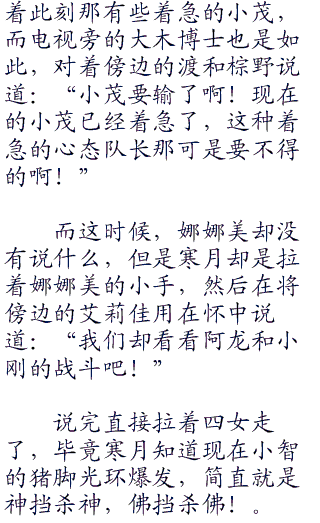 着此刻那有些着急的小茂，
而电视旁的大木博士也是如
此，对着傍边的渡和棕野说
道：“小茂要输了啊！现在
的小茂已经着急了，这种着
急的心态队长那可是要不得
的啊！”
而这时候，娜娜美却没
有说什么，但是寒月却是拉
着娜娜美的小手，然后在将
傍边的艾莉佳用在怀中说
道：“我们却看看阿龙和小
刚的战斗吧！”
说完直接拉着四女走
了，毕竟寒月知道现在小智
的猪脚光环爆发，简直就是
神挡杀神，佛挡杀佛！。